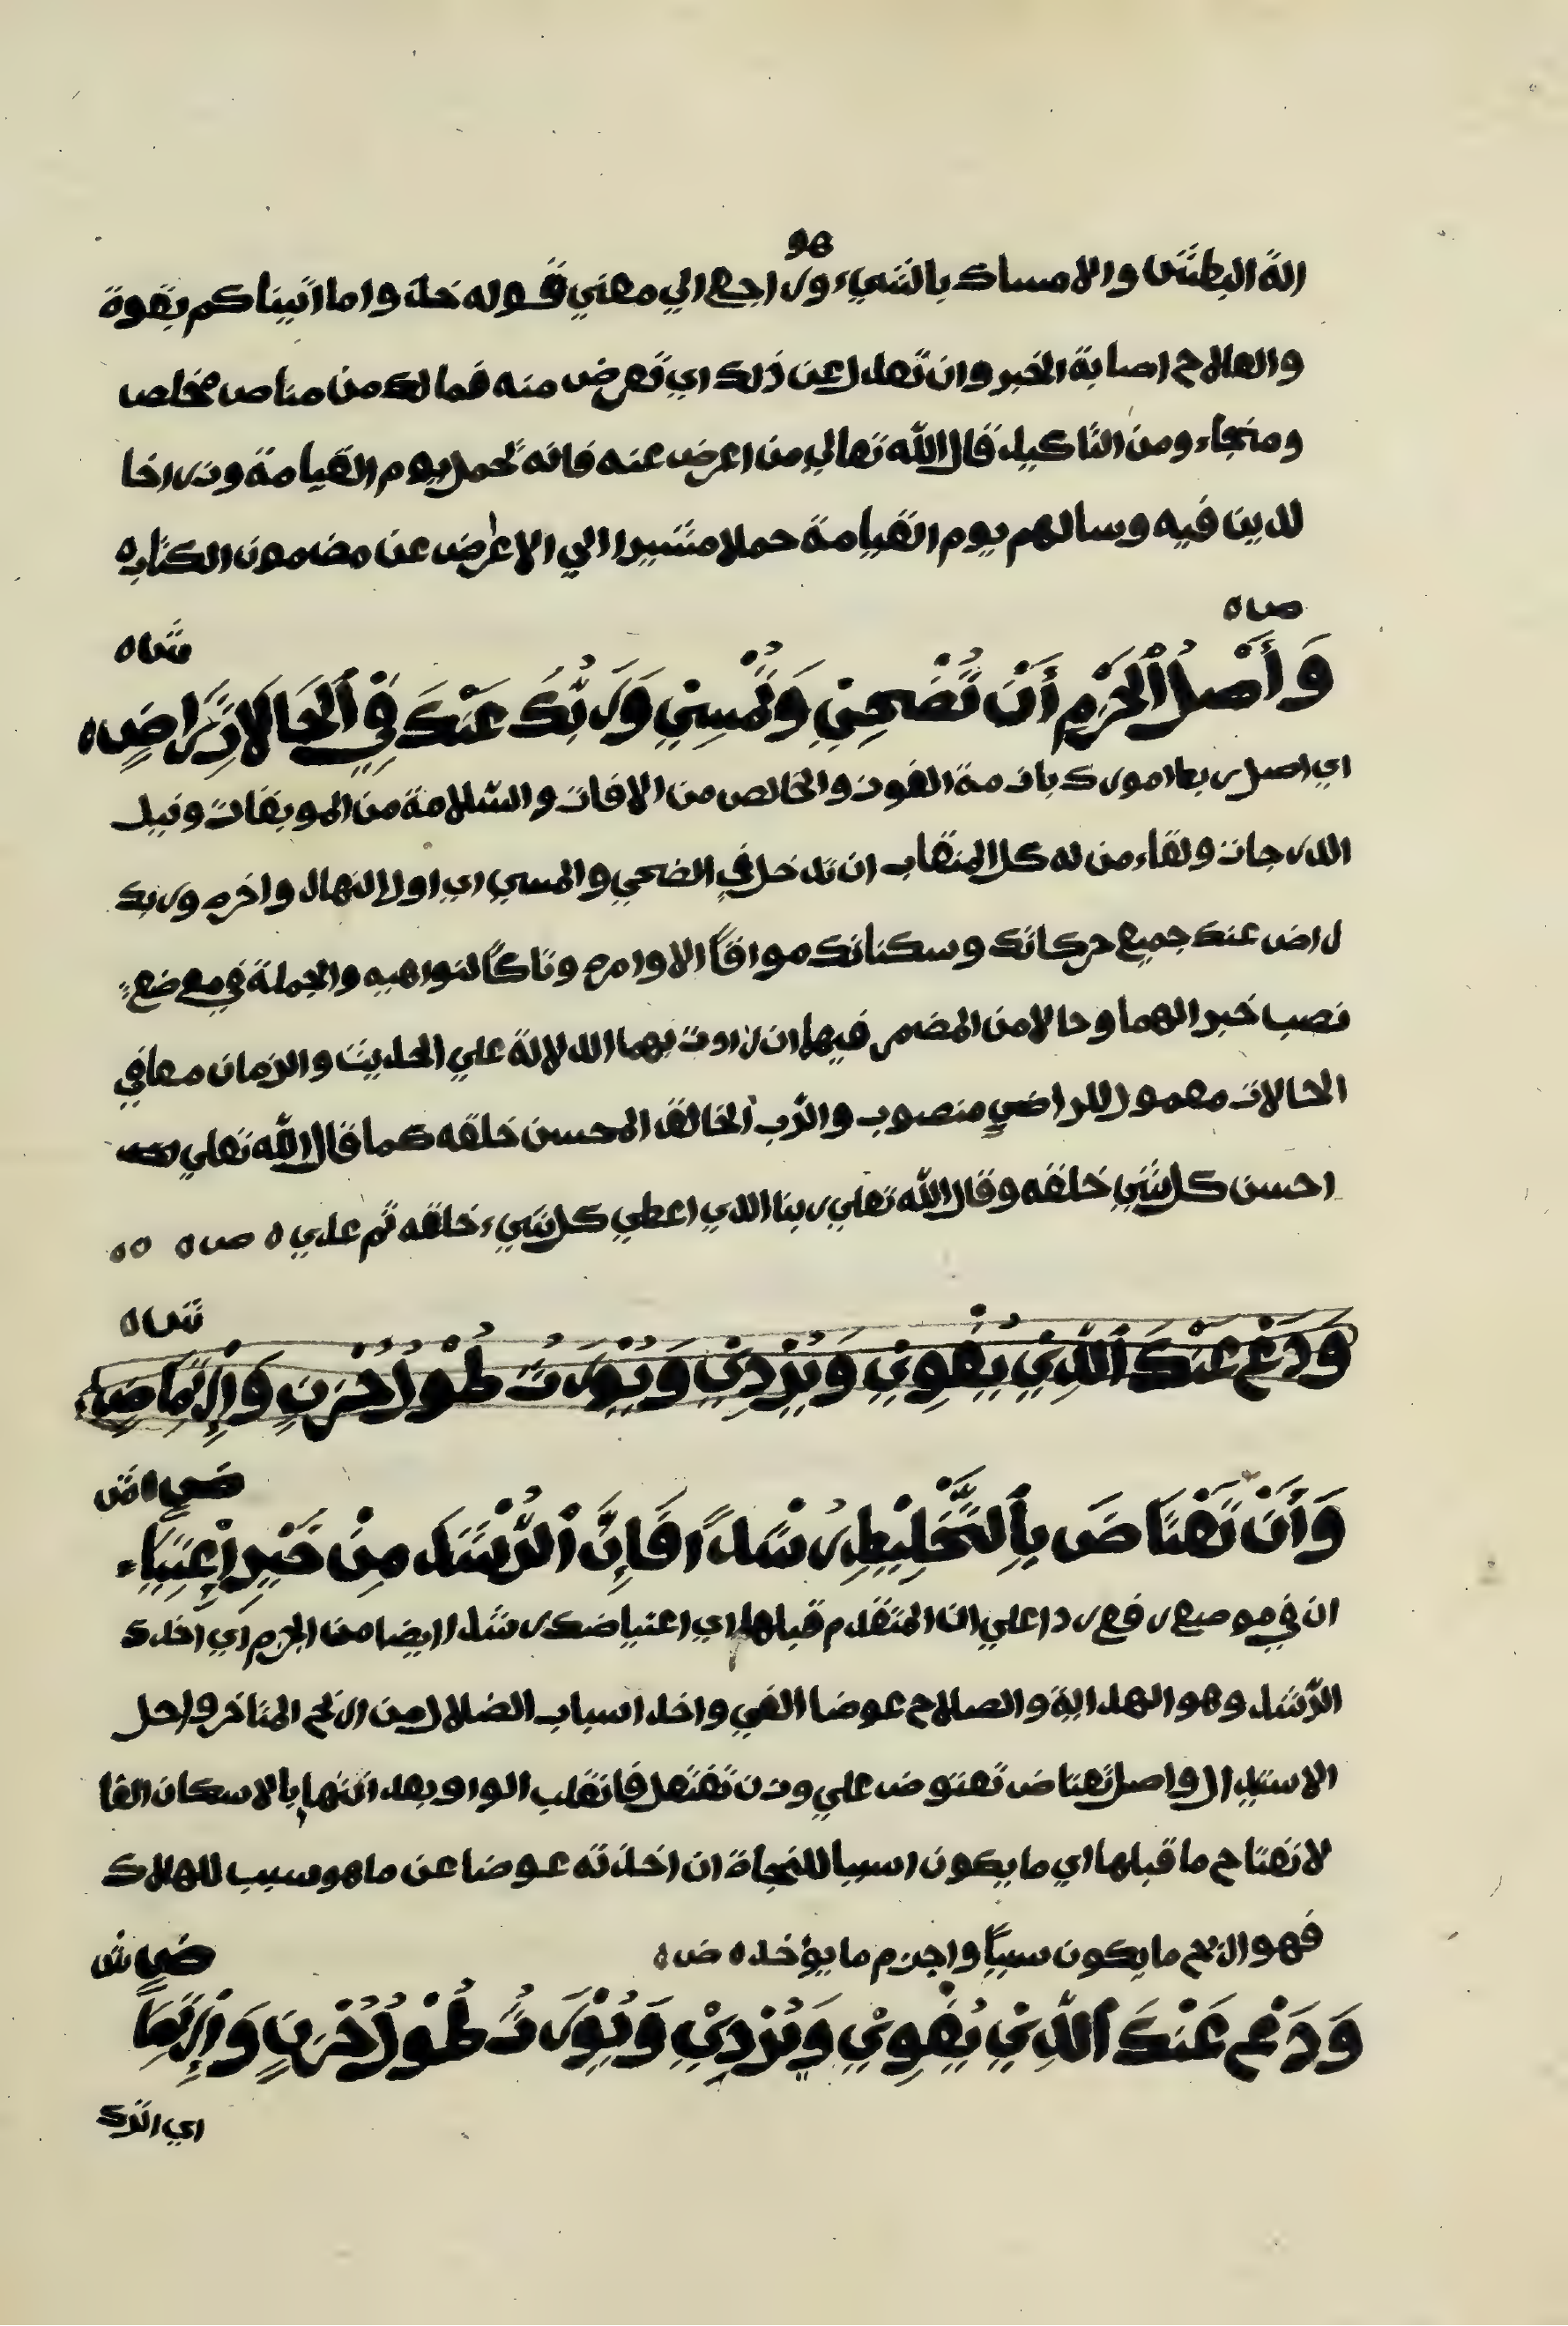 هو
الة البطش والامساك بالشيء وراجع الي معني قوله خذ واما اتيناكم بقوة
والفلاح اصابة الخير وان تعدل عن ذلك اي تعرض منه فما لك من مناص مخلص
ومنجاء ومن التاكيد قال الله تعالي من اعرض عنه فانه تحمل يوم القيامة وزرا خا
لدين فيه وسا لهم يوم القيامة حملا مشيرا الي الاعراض عن مضمون الكتاب ه
ص ه
ش ه
وَأَصْلُ ٱلْحَزْمِ أَنْ تُضْحِيِ وَتُمْسِيِ وَرَبُّكَ عَنْكَ فِي ٱلْحَالَاتِ رَاضٍ ه
اي اصل ربط امورك بازمة الفوز والخالص من الافات والسلامة من الموبقات ونيل
الدرجات ولقاء من له كل المنقاب ان تدخل في الضحي والمسي اي اول النهار واخره وربك
راض عنك جميع حركاتك وسكناتك موافقا الاوامره وتاركا لنواهيه والجملة في موضع
نصب خبر الهما وحالا من المضمر فيها ان زادت بهما الدلالة علي الحديث والزمان معا في
الحالات معمول للراضي منصوب والرب الخالق المحسن خلقه كما قال الله تعلي
احسن كل شيي خلقه وقال الله تعلي ربنا الذي اعطي كل شيء خلقه ثم هدي ه ص ه ه ه
ش ه
وَدَعْ عَنْكَ ٱلَّذِي يُغْوِيِ وَيُرْدِيِ وَيُوْرِثُ طُوْلَ حُزْنٍ وَٱرْتِمَاضٍ
ض ش
وَأَنْ تَعْتَاضَ بِٱلتَّخْلِيْطِ رُشْدًا فَإِنَّ ٱلرُّشْدَ مِنْ خَيْرِ ٱعْتِيَاءِ
ان في موضع رفع ردا علي ان المتقدم قبلها اي اعتياضك رشدا ايضا من الحزم اي اخذك
الرشد وهو الهداية والصلاح عوضا الغي واخذ اسباب الضلال من الربح المتاخر واصل
الاستبدال واصل تعتاض تعتوض علي وزن تفتعل فانقلب الواو بعد اتنها بالاسكان الفا
لانفتاح ما قبلها اي ما يكون اسبا للنجاة ان اخذته عوضا عن ما هو سبب للهلاك
فهو الربح ما يكون سببا واجزم ما يؤخذ ه ض ه
ض ش
وَدَعْ عَنْكَ ٱلَّذِيْ يُغْوِيِ وَيُرْدِيْ وَيُوْرِثُ طُوْلَ حُزْنٍ وَٱرْتِمَا
اي اترك